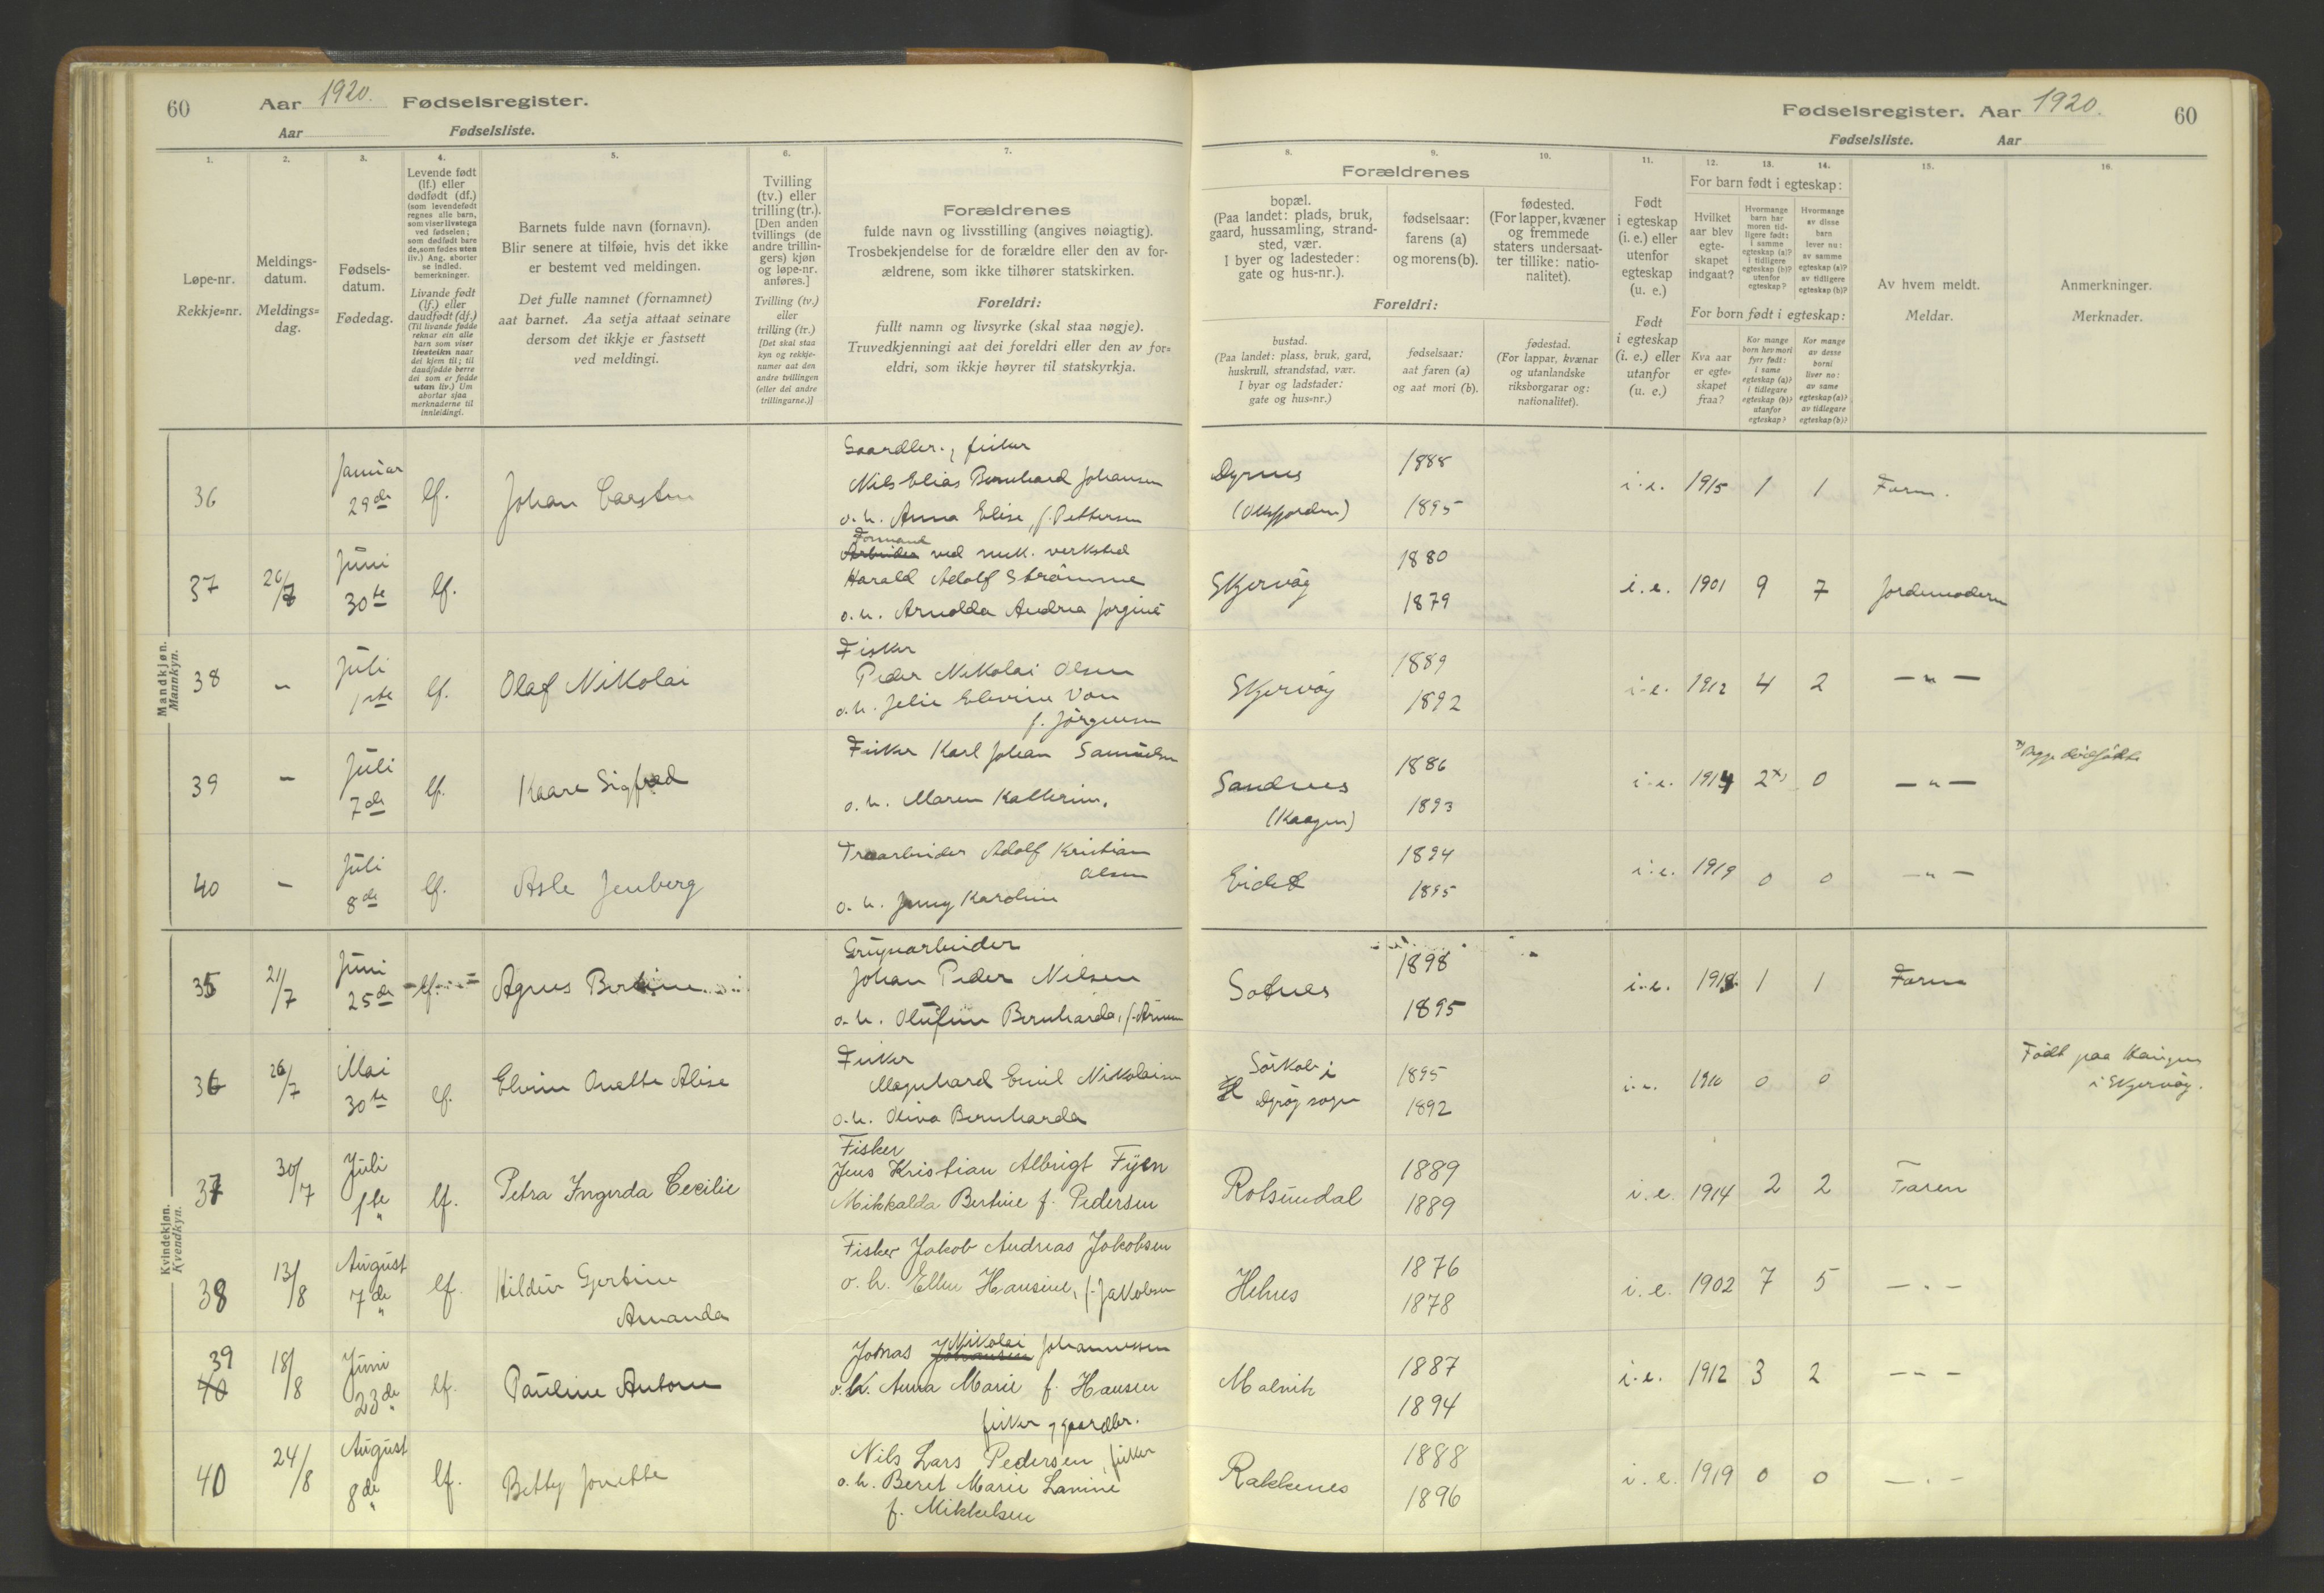 60 Aar 1920. Fødselsregister.
Aar Fødselsliste.
Fødselsregister. Aar 1920. 60
Fødselsliste. Aar
1. 2. 3. 4. 5. 6. 7.
Løpe-nr.
Rekkje=nr.
Meldings-
datum.
Meldings=
dag.
Fødsels-
datum.
Fødedag.
Levende født
(lf.) eller
dødfødt (df.)
(som levendefødt
regnes alle barn,
som viser livstegn
ved fødselen;
som dødfødt bare
de, som fødes uten
liv.) Ang. aborter
se indled.
bemerkninger.
Livande født
(lf.) eller
daudfødt (df.)
(Til livande fødde
reknar ein alle
barn som viser
livsteikn naar
dei kjem til; til
daudfødde berre
dei som er fødde
utan liv.) Um
abortar sjaa
merknaderne til
innleidingi.
Barnets fulde navn (fornavn).
Blir senere at tilføie, hvis det ikke
er bestemt ved meldingen.
Det fulle namnet (fornamnet)
aat barnet. Aa setja attaat seinare
dersom det ikkje er fastsett
ved meldingi.
Tvilling
(tv.) eller
trilling (tr.).
[Den anden
tvillings (de
andre trillin-
gers) kjøn
og løpe-nr.
anføres.]
Tvilling (tv.)
eller
trilling (tr.)
[Det skal staa
kyn og rekkje-
numer aat den
andre tvillingen
(eller dei andre
trillingarne.)]
Forældrenes
fulde navn og livsstilling (angives nøiagtig).
Trosbekjendelse for de forældre eller den av for-
ældrene, som ikke tilhører statskirken.
Foreldri:
fullt namn og livsyrke (skal staa nøgje).
Truvedkjenningi aat dei foreldri eller den av for=
eldri, som ikkje høyrer til statskyrkja.
8. 9. 10. 11. 12. 13. 14. 15. 16.
Forældrenes
bopæl.
(Paa landet: plads, bruk,
gaard, hussamling, strand-
sted, vær.
I byer og ladesteder:
gate og hus-nr.).
fødselsaar:
farens (a)
og morens (b).
fødested.
(For lapper, kvæner
og fremmede
staters undersaat-
ter tillike: natio-
nalitet).
Foreldri:
bustad.
(Paa landet: plass, bruk, gard,
huskrull, strandstad, vær.
I byar og ladstader:
gate og hus=nr.)
fødselsaar:
aat faren (a)
og aat mori (b).
fødestad.
(For lappar, kvænar
og utanlandske
riksborgarar og:
nationalitet).
Født
i egteskap
(i. e.) eller
utenfor
egteskap
(u. e.)
Født
i egteskap
(i. e.) eller
utanfor
(u. e.)
For barn født i egteskap:
Hvilket
aar blev
egte-
skapet
indgaat?
Hvormange
barn har
moren tid-
ligere født:
i samme
egteskap (a)?
i tidligere
egteskap (b)?
utenfor
egteskap?
Hvormange
av disse
barn
lever nu:
av samme
egteskap (a)?
av tidligere
egteskap (b)?
For born født i egteskap:
Kva aar
er egte-
skapet
fraa?
Kor mange
born hev mori
fyrr født:
i same
egteskap (a)?
i tidlegare
egteskap (b)?
utanfor
egteskap?
Kor mange
av desse
borni
liver no:
av same
egteskap (a)?
av tidlegare
egteskap (b)?
Av hvem meldt.
Meldar.
Anmerkninger.
Merknader.
Mandkjøn.
Mannkyn.
36 Januar 29de lf. Johan Carsten
Gaardbr., fisker
Nils Elias Bernhard Johansen
o. h. Anna Elise, f. Pettersen
(Oksfjorden) 1888 1895 i. e. 1915 1 1 Faren.
37 26/7 Juni 30te lf.
Formand
Arbeider ved mek. verksted
Harald Adolf Strømme
o. h. Arnolda Andrea Jorgine
Skjervøy 1880 1879 i. e. 1901 9 7 Jordemoderen
38 – Juli 1ste lf. Olaf Nikolai
Fisker
Peder Nikolai Olsen
f. Jørgensen
Skjervøy 1889 1892 i. e. 1912 4 2 — " —
39 – Juli 7de lf. Kaare Sigfred
Fisker Karl Johan Samuelsen
o. h. Maren Kathrine.
Sandnes
(Kaagen) 1886 1893 i. e. 1914 2x) 0 — " —
x) Begge dødfødte
40 – Juli 8de lf. Asle Jenberg
Træarbeider Adolf Kristian
Olsen
o. h. Jenny Karoline
Eidet 1894 1895 i. e. 1919 0 0 — " —
Kvindekjøn.
Kvendkyn.
35 21/7 Juni 25de lf. Agnes Bertine
Gruvarbeider
Johan Peder Nilsen
o. h. Olufine Bernharda, f.
Sotnes 1898 1895 i. e. 1918 1 1 Faren
36 26/7 Mai 30te lf. Elvine Anette Alise
Fisker
Magnhard Emil Nikolaisen
o. h. Oliva Bernharda
i
sogn 1895 1892 i. e. 1910 0 0
Født paa Kaagen
i Skjervøy.
37 30/7 Juli 1ste lf. Petra Ingerda Cecilie
Fisker
Jens Kristian Albrigt Fyen
Mikkalda Bertine f. Pedersen
Rotsundal 1889 1889 i. e. 1914 2 2 Faren
38 13/8 August 7de lf. Hildur Gjertine
Amanda
Fisker Jakob Andreas Jakobsen
o. h. Ellen Hansine, f. Jakobsen
Helnes 1876 1878 i. e. 1902 7 5 — " —
39
40 18/8 Juni 23de lf. Pauline Antonie
Jonas Johansen Nikolai Johannessen
o. h. Anna Marie f. Hansen
fisker og gaardbr.
Malvik 1887 1894 i. e. 1912 3 2 — " —
40 24/8 August 8de lf. Betty Jonette
Nils Lars Pedersen, fisker
o. h. Beret Marie Lavine
f. Mikkelsen
Rakkenes 1888 1896 i. e. 1919 0 0 — " —